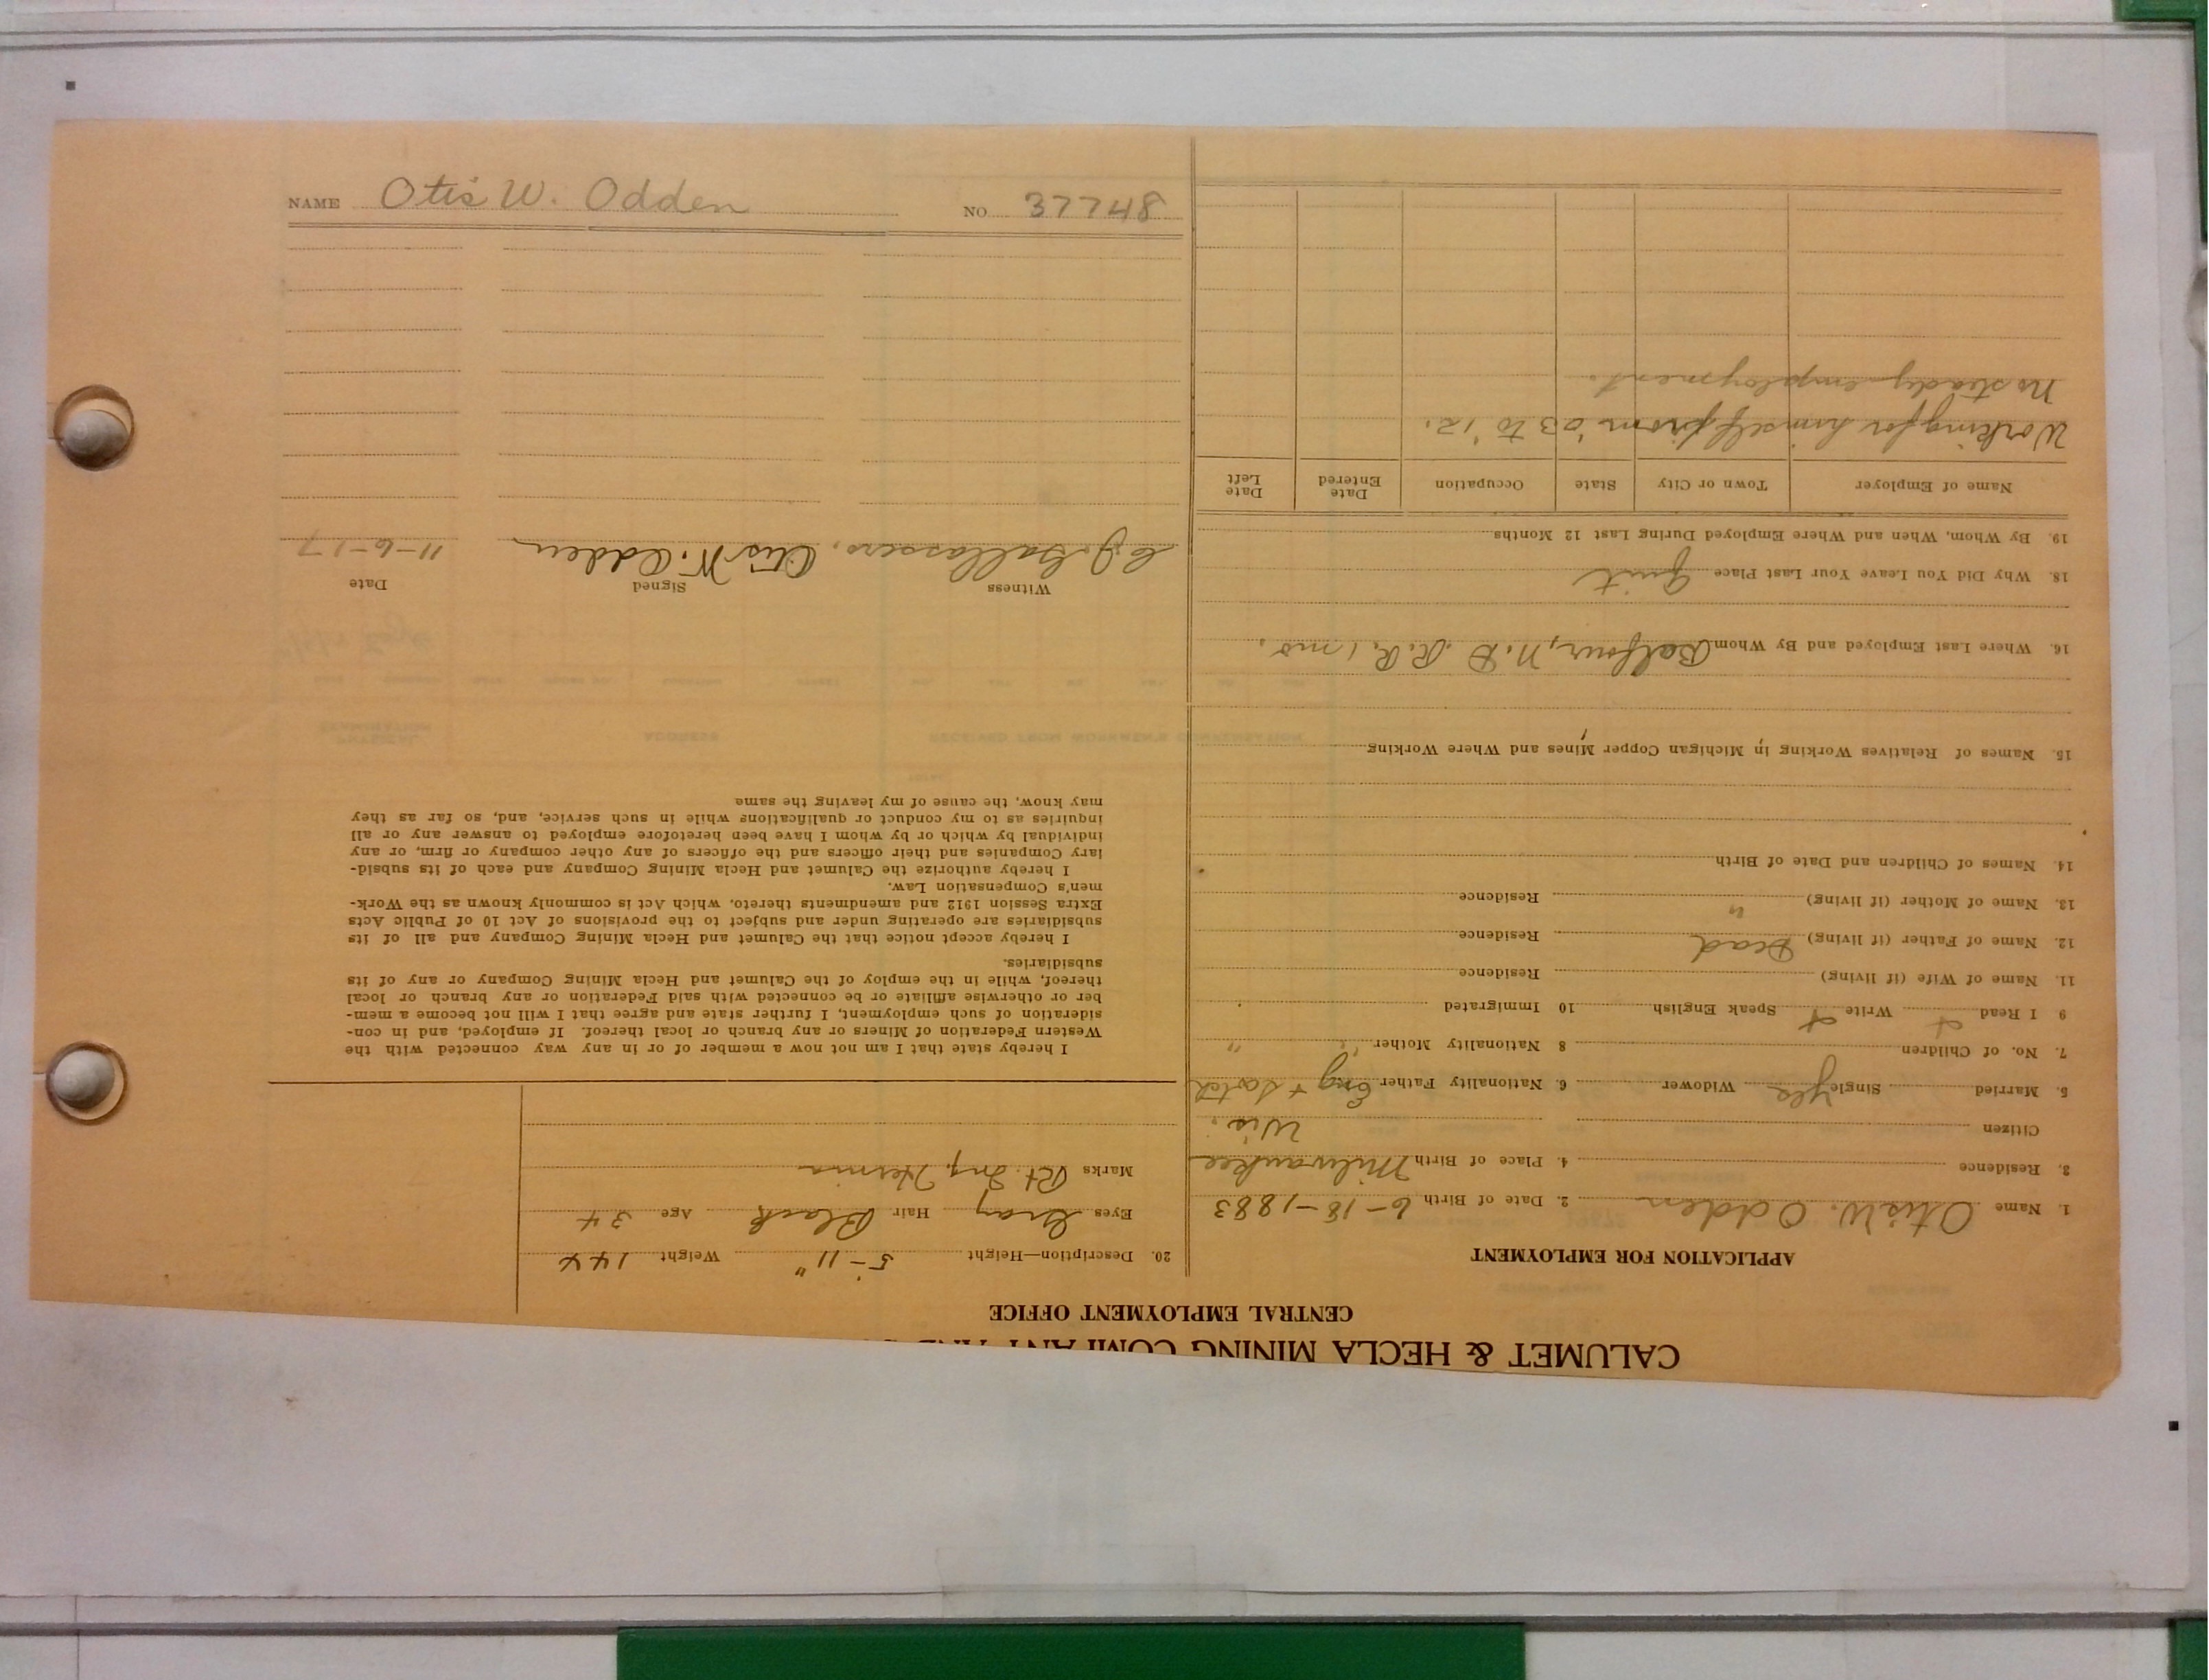 NAME Otis W. Odden NO. 37748
CALUMET & HECLA MINING
CENTRAL EMPLOYMENT OFFICE
APPLICATION FOR EMPLOYMENT
1. Name Otis W. Odden 2. Date of Birth 6-18-1883
3. Residence 4. Place of Birth Milwaukee
Citizen Wis.
5. Married Single Yes Widower 6. Nationality Father Eng + Scotch
7. No. of Children 8 Nationality Mother " "
9 I Read Write Speak English 10 Immigrated
11. Name of Wife (if living) Residence
12. Name of Father (if living) Dead Residence
13. Name of Mother (if living) " Residence
14. Names of Children and Date of Birth
15. Names of Relatives Working in Michigan Copper Mines and Where Working
16. Where Last Employed and By Whom Balfour, N.D. R.R. 1 mo.
18. Why Did You Leave Your Last Place Quit
19. By Whom, When and Where Employed During Last 12 Months
Name of Employer Town or City State Occupation Date Entered Date Left
Working for himself from '03 to '12.
No steady employment.
20. Description—Height 5-11" Weight 144
Eyes Gray Hair Black Age 34
Marks Rt. Ing. Hernia
I hereby state that I am not now a member of or in any way connected with the
Western Federation of Miners or any branch or local thereof. If employed, and in con-
sideration of such employment, I further state and agree that I will not become a mem-
ber or otherwise affiliate or be connected with said Federation or any branch or local
thereof, while in the employ of the Calumet and Hecla Mining Company or any of its
subsidiaries.
I hereby accept notice that the Calumet and Hecla Mining Company and all of its
subsidiaries are operating under and subject to the provisions of Act 10 of Public Acts
Extra Session 1912 and amendments thereto, which Act is commonly known as the Work-
men's Compensation Law.
I hereby authorize the Calumet and Hecla Mining Company and each of its subsid-
iary Companies and their officers and the officers of any other company or firm, or any
individual by which or by whom I have been heretofore employed to answer any or all
inquiries as to my conduct or qualifications while in such service, and, so far as they
may know, the cause of my leaving the same
Witness Signed Date
Otis W. Odden 11-6-17